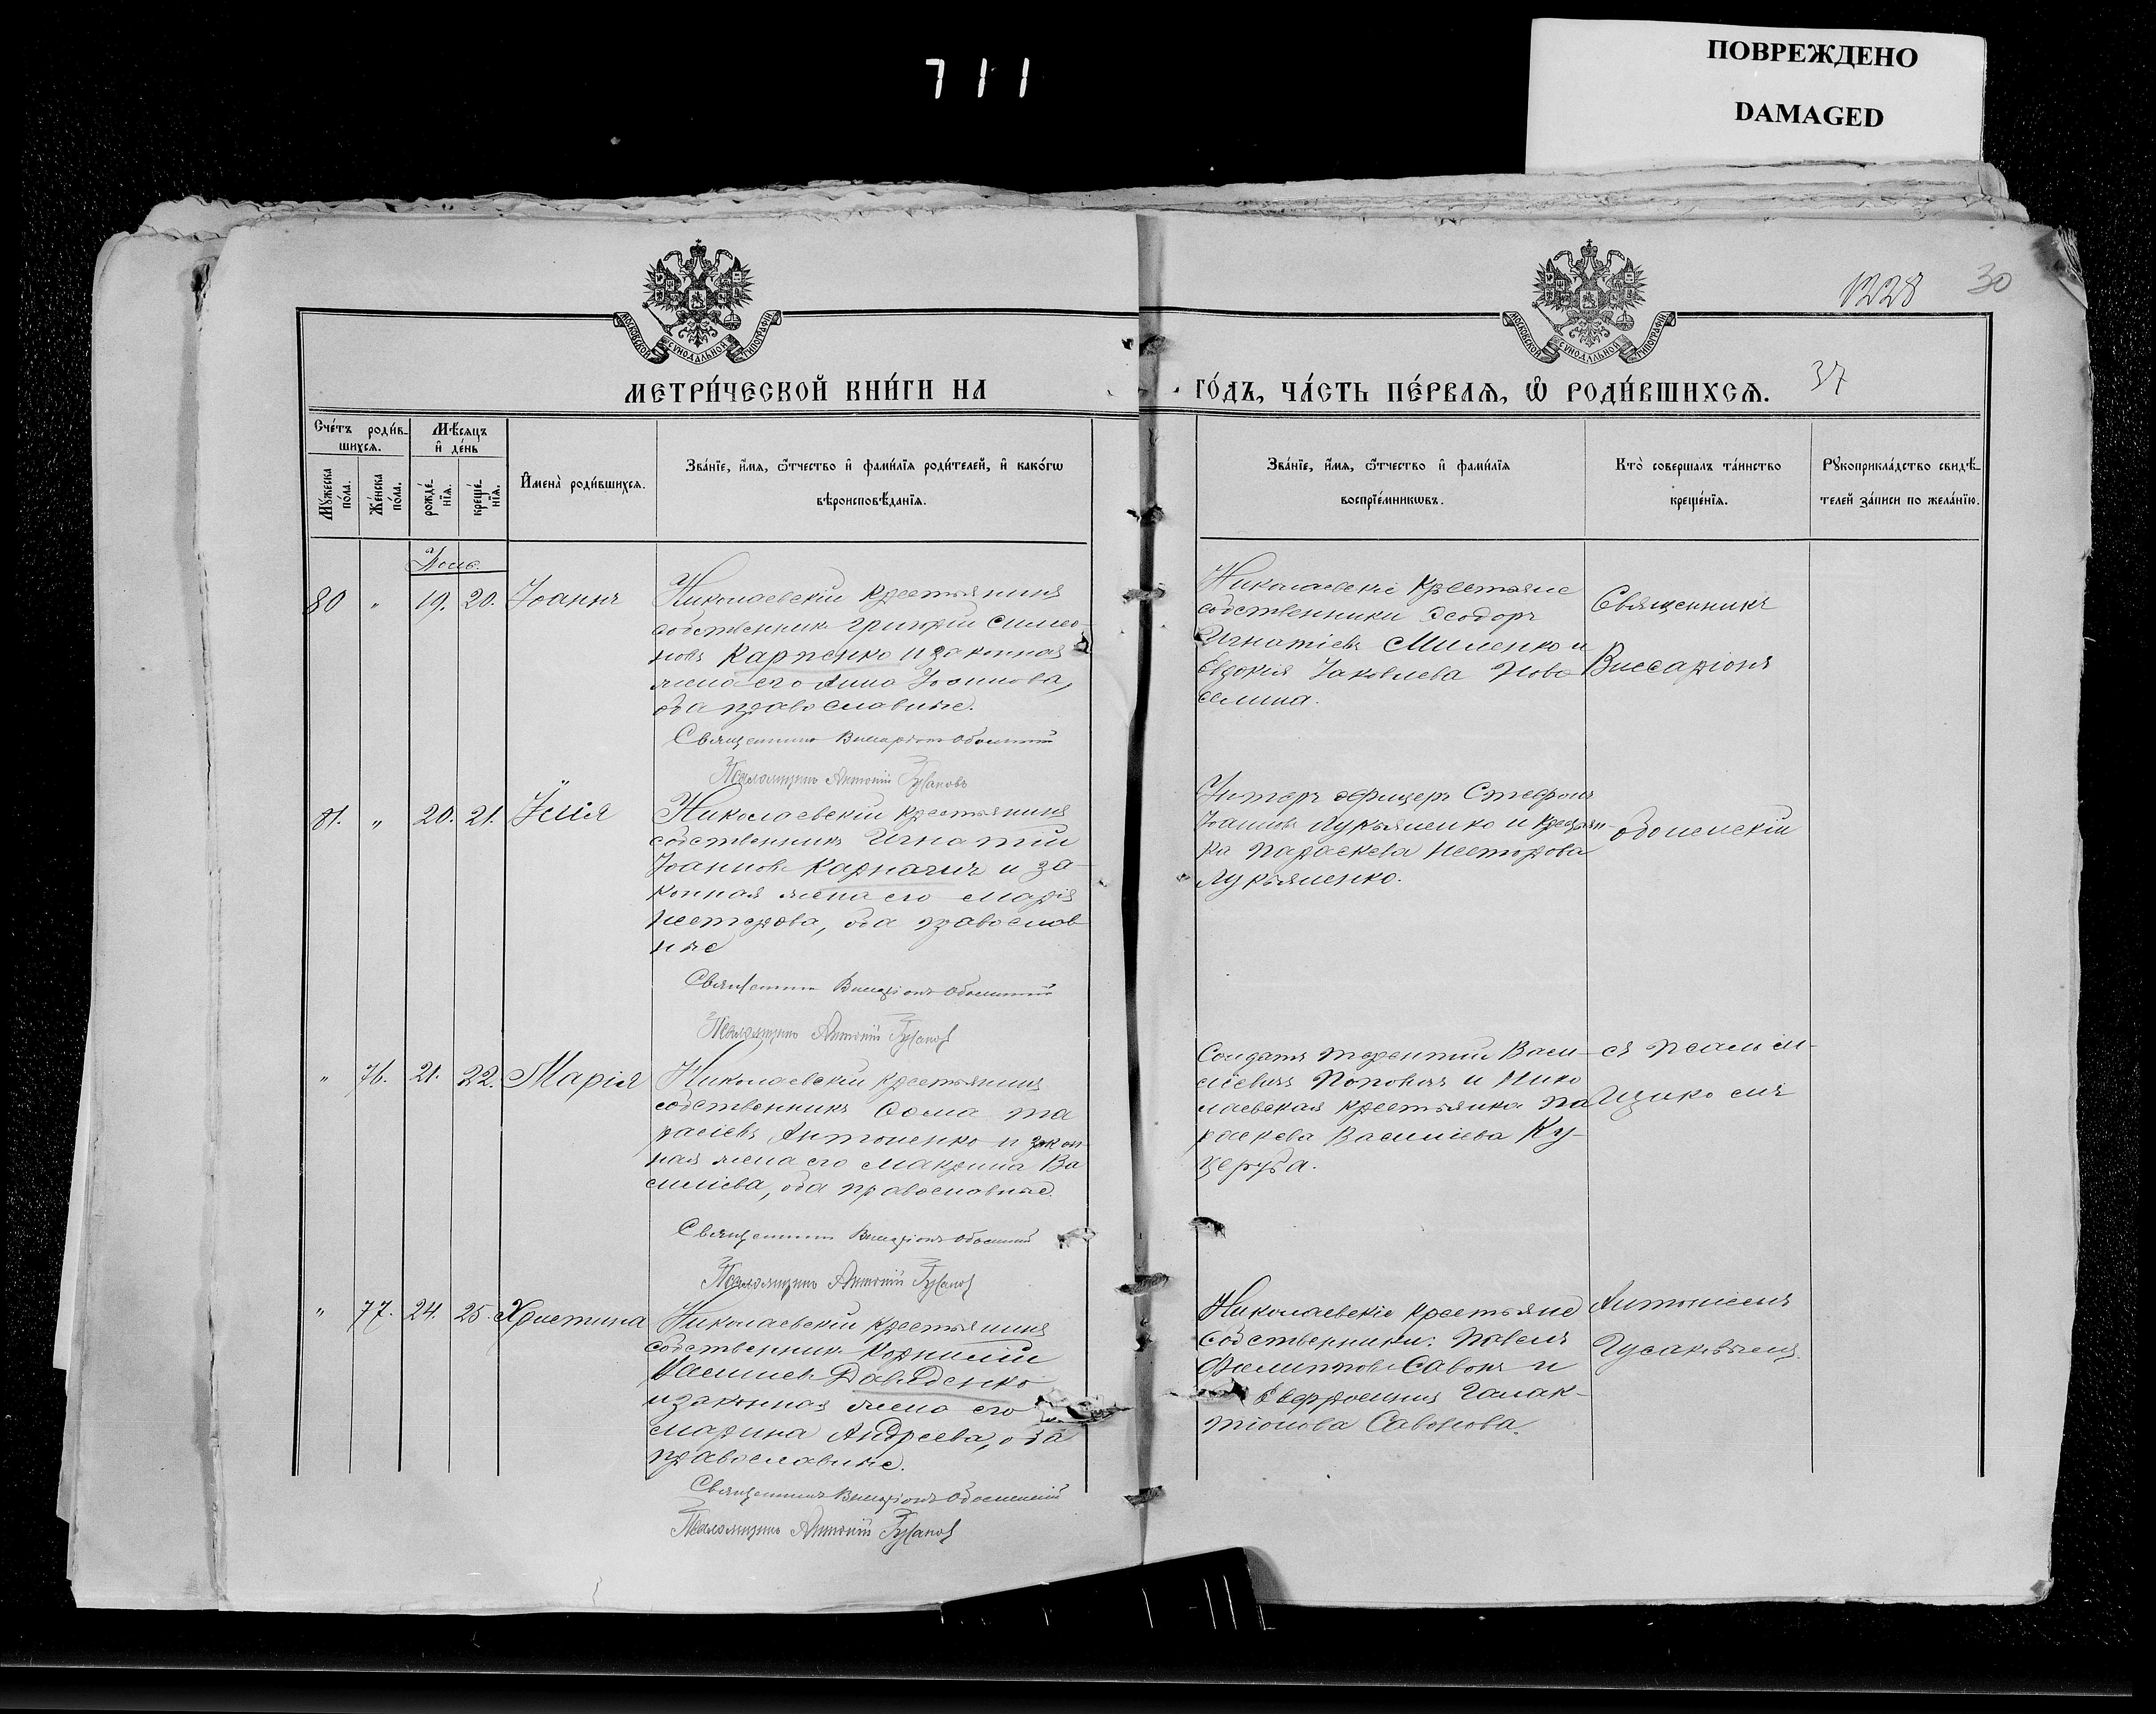 711
ПОВРЕЖДЕНО
DAMAGED
1228
30
37
МОСКОВСКОЙ СѴНОДАЛЬНОЙ ТИПОГРАФІИ
МОСКОВСКОЙ СѴНОДАЛЬНОЙ ТИПОГРАФІИ
МЕТРИ́ЧЕСКОЙ КНИ́ГИ НА
ГО́ДЪ, ЧА́СТЬ ПЕ́РВАѦ, Ѽ РОДИ́ВШИХСѦ.
Сче́тъ роди́в-
шихсѧ.
Мꙋ́жеска по́ла.
Же́нска по́ла.
Мѣ́сѧцъ
и҆ де́нь
рожде́-нїѧ.
креще́-нїѧ.
И҆мена̀ роди́вшихсѧ.
Зва́нїе, и҆́мѧ, ѻ҆́тчество и҆ фами́лїѧ роди́телей, и҆ како́гѡ
вѣроисповѣ́данїѧ.
Зва́нїе, и҆́мѧ, ѻ҆́тчество и҆ фами́лїѧ
воспрїе́мникѡвъ.
Кто̀ соверша́лъ та́инство
креще́нїѧ.
Рꙋкоприкла́дство свидѣ́-
телей за́писи по жела́нїю.
80 " 19. 20. Іоаннъ
Николаевскій крестьянинъ
собственник Григорій Симео-
новъ Карпенко и законная
жена его Анна Іоаннова,
оба православные.
Священникъ Виссаріонъ Оболенскій
Псаломщикъ Антоній Гусаковъ
Николаевскіе крестьяне
собственники Ѳеодоръ
Игнатіевъ Миленко и
Евдокія Іаковлева Ново
селина.
Священникъ
Виссаріонъ
81. " 20. 21. Илія
Николаевскій крестьянинъ
собственникъ Игнатій
Іоанновъ Карначъ и за-
конная жена его Марія
Несторова, оба православ-
ные
Священникъ Виссаріонъ Оболенскій
Псаломщикъ Антоній Гусаковъ
Унтеръ офицеръ Стефанъ
Іоанновъ Лукьяненко и крестьян-
ка Параскева Несторова
Лукьяненко.
Оболенскій
" 76. 21. 22. Марія
Николаевскій крестьянинъ
собственникъ Ѳома Та
расіевъ Антоненко и закон-
ная жена его Макрина Ва
силіева, оба православные.
Священникъ Виссаріонъ Оболенскій
Псаломщикъ Антоній Гусаковъ
Солдатъ Терентій Васи-
ліевичъ Поповичъ и Нико
лаевская крестьянка Па
раскева Василіева Ку-
церуба.
съ псалом-
щикомъ
" 77. 24. 25. Христина
Николаевскій крестьянинъ
собственник Корнилій
Давиденко
и законная жена его
Марина Андреева, оба
православные.
Священникъ Виссаріонъ Оболенскій
Псаломщикъ Антоній Гусаковъ
Николаевскіе крестьяне
собственники: Павелъ
Филипповъ Савонъ и
Евфросинія Галак-
тіонова Савонова.
Антоніемъ
Гусаковымъ.